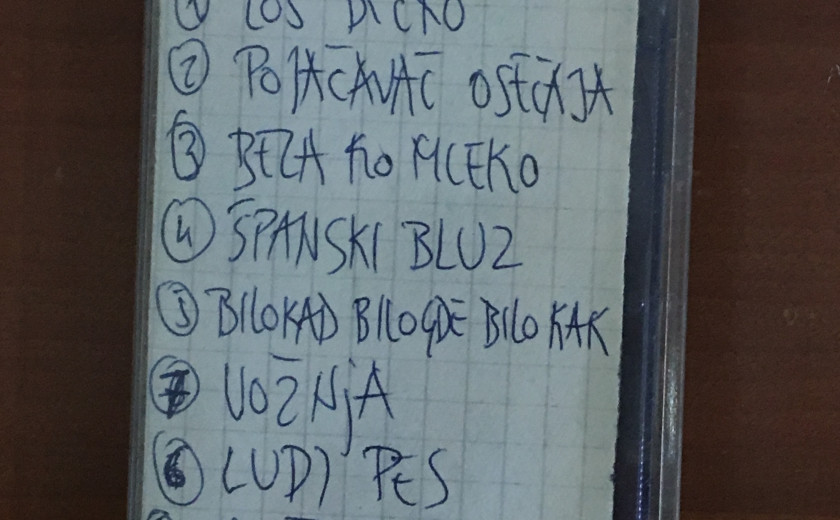 ① LOŠ DIČKO
② POJAČAVAČ OSEĆAJA
③ BELA KO MLEKO
④ ŠPANSKI BLUZ
⑤ BILOKAD BILOGDE BILO KAK
⑦ VOŽNjA
⑥ LUDI PES